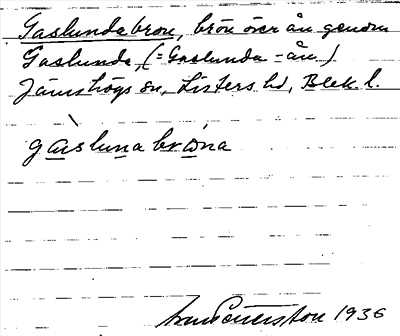 Gaslundabron, bron över ån genom
Gaslunda, (= Gaslunda-ån)
Jämshögs sn, Listers hd, Blek. l.
gàslunabrona
1936